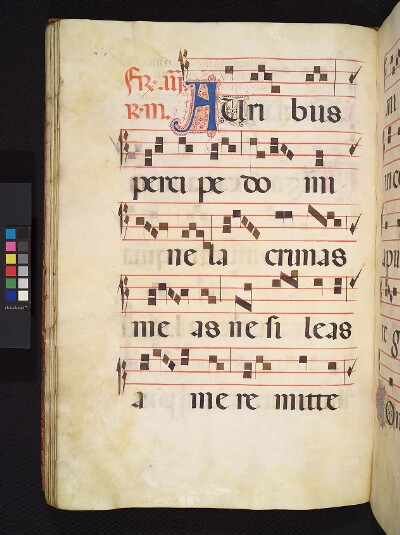 Fr. iii
R. iii. Auri bus
perci pe do mi
ne la crimas
me as ne si leas
a me re mitte